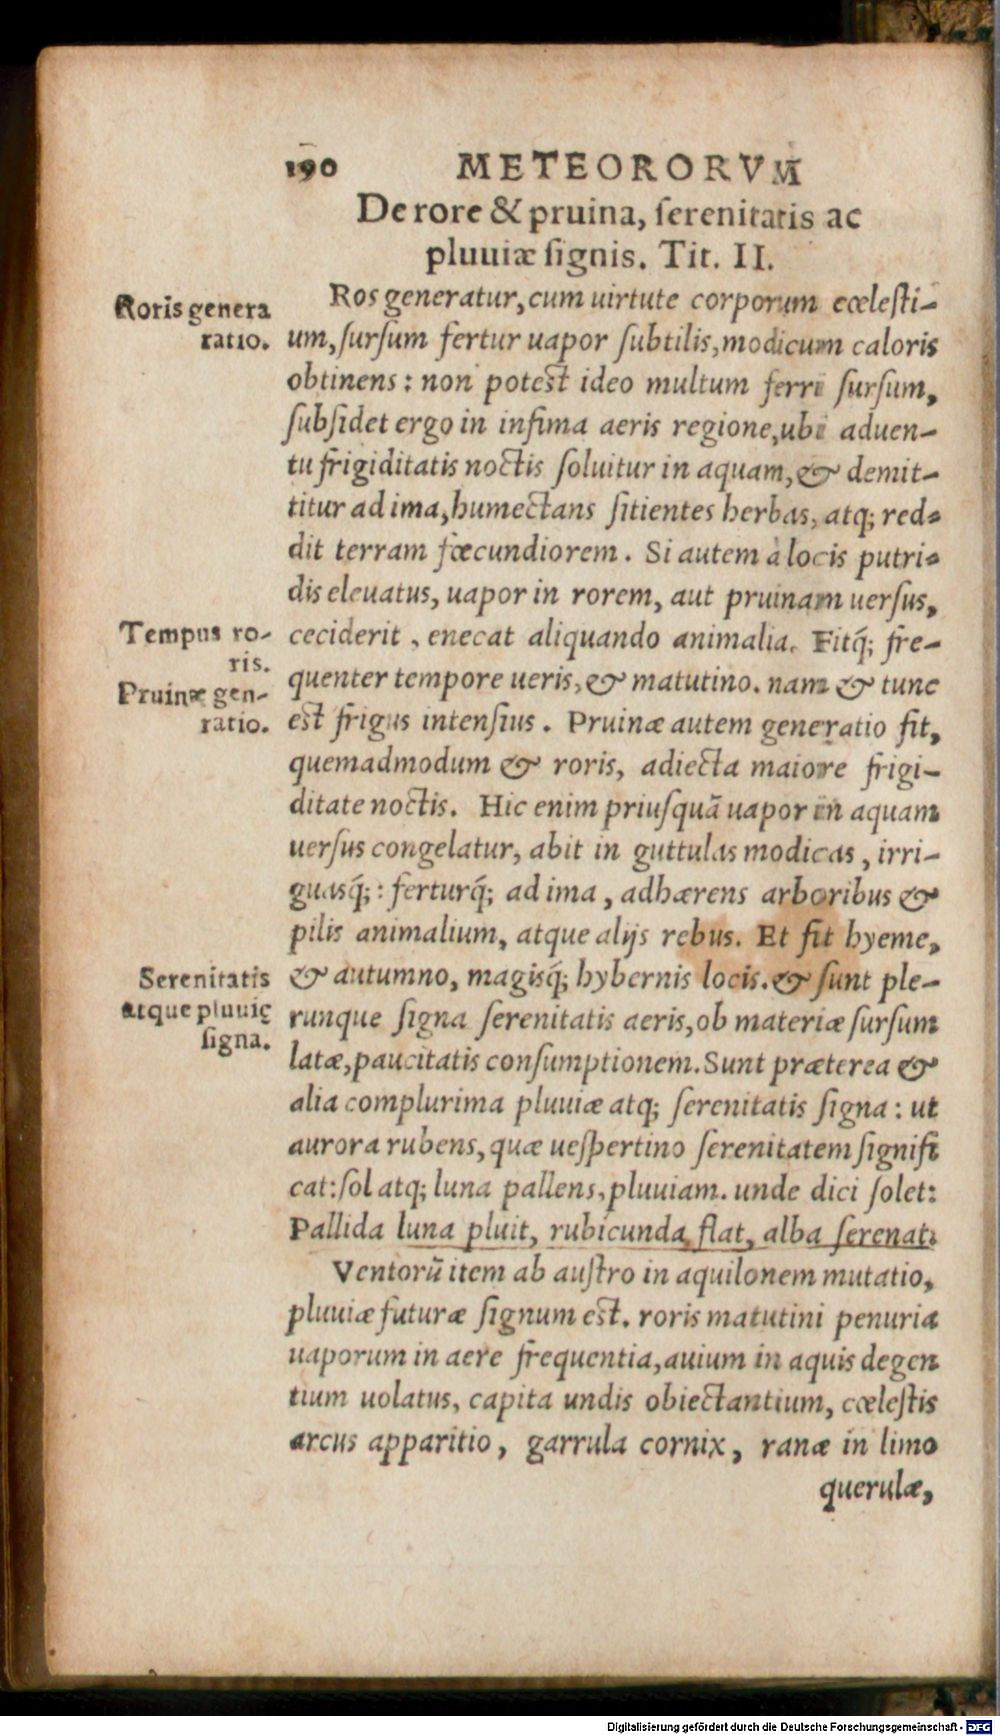 190 METEORORVM
De rore & pruina, ſerenitatis ac
pluuiæ ſignis. Tit. II.
Roris genera
ratio.
Ros generatur, cum uirtute corporum cœleſti-
um, ſurſum fertur uapor ſubtilis, modicum caloris
obtinens: non poteſt ideo multum ferri ſurſum,
ſubſidet ergo in infima aeris regione, ubi aduen-
tu frigiditatis noctis ſoluitur in aquam, & demit-
titur ad ima, humectans ſitientes herbas, atq; red-
dit terram fœcundiorem. Si autem à locis putri-
dis eleuatus, uapor in rorem, aut pruinam uerſus,
Tempus ro-
ris.
ceciderit, enecat aliquando animalia. Fitq́; fre-
quenter tempore ueris, & matutino. nam & tunc
Pruinæ gen-
ratio.
eſt frigus intenſius. Pruinæ autem generatio fit,
quemadmodum & roris, adiecta maiore frigi-
ditate noctis. Hic enim priuſquā uapor in aquam
uerſus congelatur, abit in guttulas modicas, irri-
guasq́;: ferturq́; ad ima, adhærens arboribus &
pilis animalium, atque alijs rebus. Et fit hyeme,
Serenitatis
atque pluuię
ſigna.
& autumno, magisq́; hybernis locis. & ſunt ple-
runque ſigna ſerenitatis aeris, ob materiæ ſurſum
latæ, paucitatis conſumptionem. Sunt præterea &
alia complurima pluuiæ atq; ſerenitatis ſigna: ut
aurora rubens, quæ ueſpertino ſerenitatem ſignifi
cat: ſol atq; luna pallens, pluuiam. unde dici ſolet:
Pallida luna pluit, rubicunda flat, alba ſerenat.
Ventorū item ab auſtro in aquilonem mutatio,
pluuiæ futuræ ſignum eſt. roris matutini penuria
uaporum in aere frequentia, auium in aquis degen
tium uolatus, capita undis obiectantium, cœleſtis
arcus apparitio, garrula cornix, ranæ in limo
querulæ,
Digitalisierung gefördert durch die Deutsche Forschungsgemeinschaft - DFG